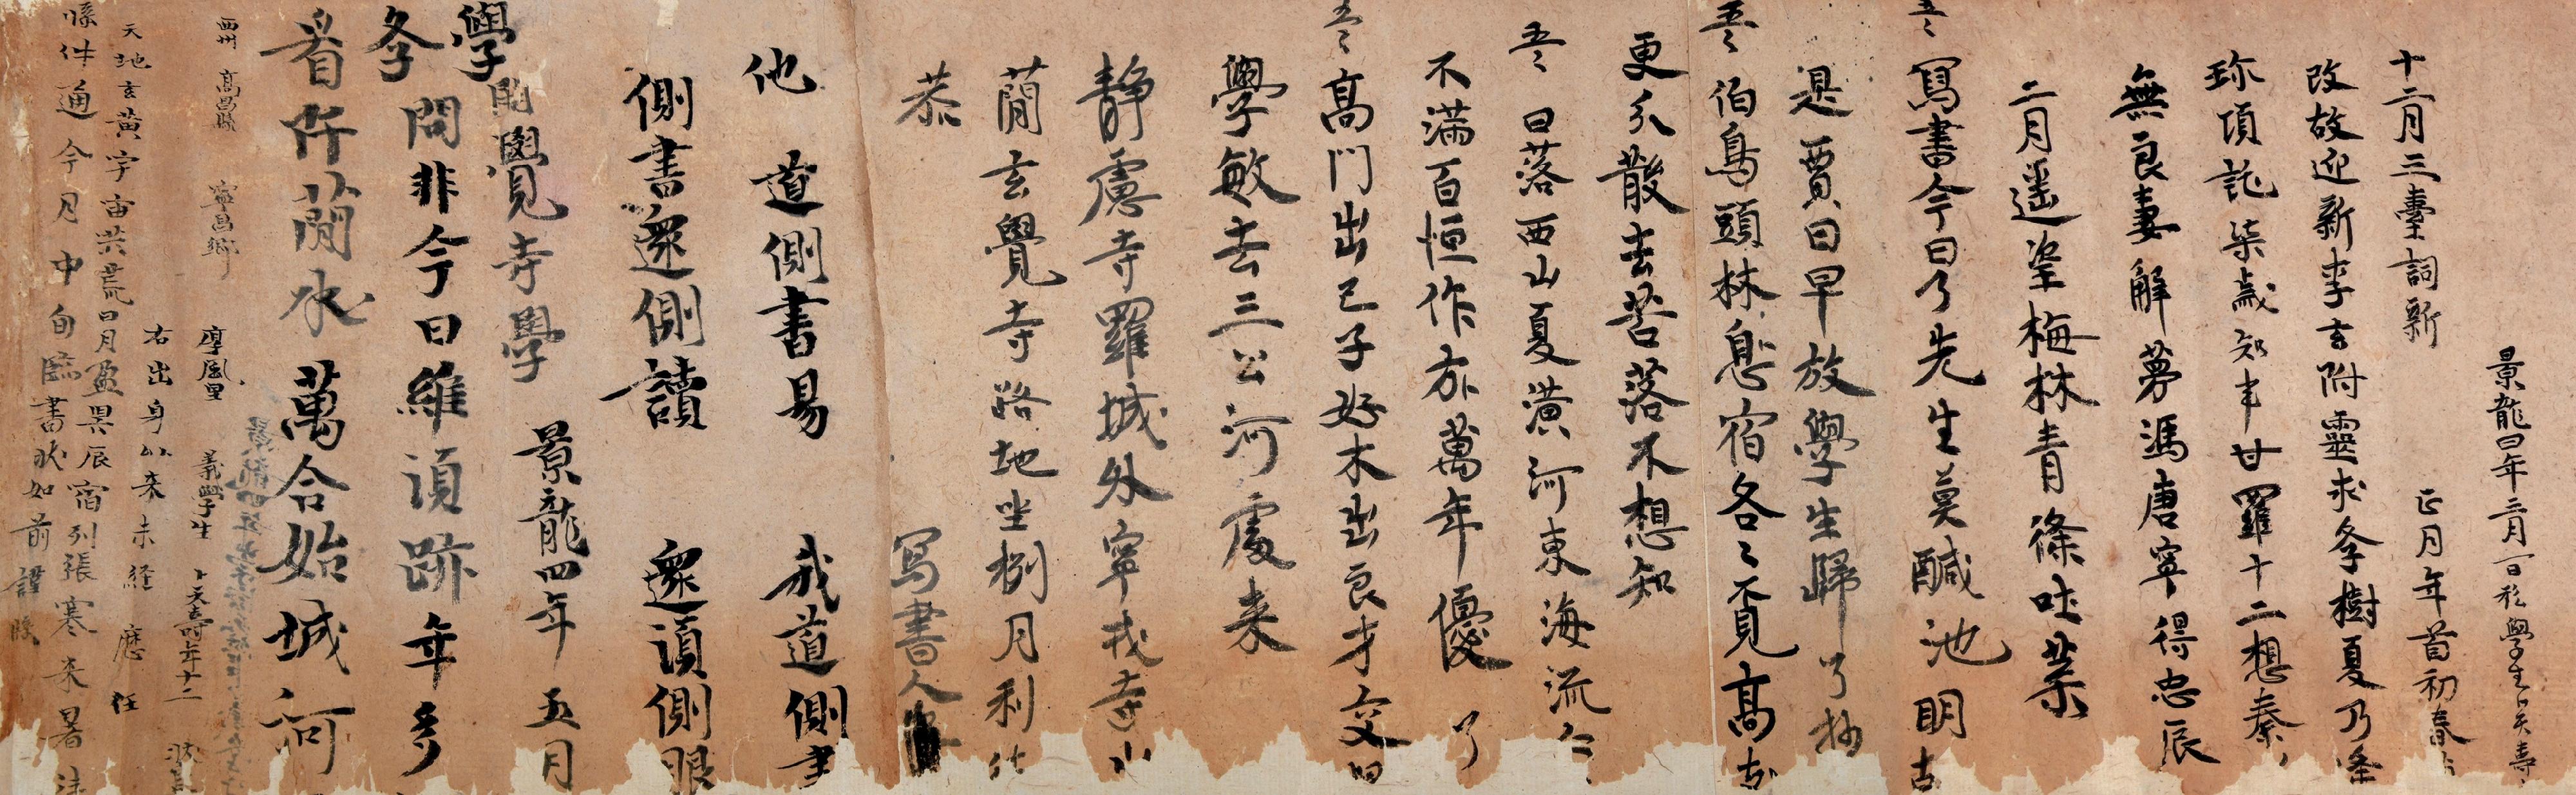 景龍四年三月一日私學生卜天壽
十二月三臺詞新 正月年首初春
改故迎新李玄附靈求學樹夏乃逢
珎項託柒歲知事甘羅十二想秦
無良妻解夢馮唐寧得忠辰
二月遙望梅林青條吐葉
寫書今日了先生莫醎池明
是賈日早放學生歸 了抄
伯鳥頭林息宿各〻覓高
更分散去苦落不想知
日落西山夏潢河東海流
不滿百恒作万萬年優 了
高門出己子好木出良才交
學敏去三公河處來
靜慮寺羅城外寧戎寺
蕳玄覺寺路地坐捌月利
恭 寫書人
他道側書易 我道側書
側書還側讀 還須側眼
學開覺寺學 景龍四年五月
學問非今日維須跡年多
看阡蕳水萬合始城河
西州 高昌縣 寧昌鄉 厚風里 義學生 卜天壽年十二 狀
右出身以來未經應任
天地玄黃宇宙洪荒日月盈昃辰宿列張寒來暑
牒件通今月中旬臨書狀如前謹牒